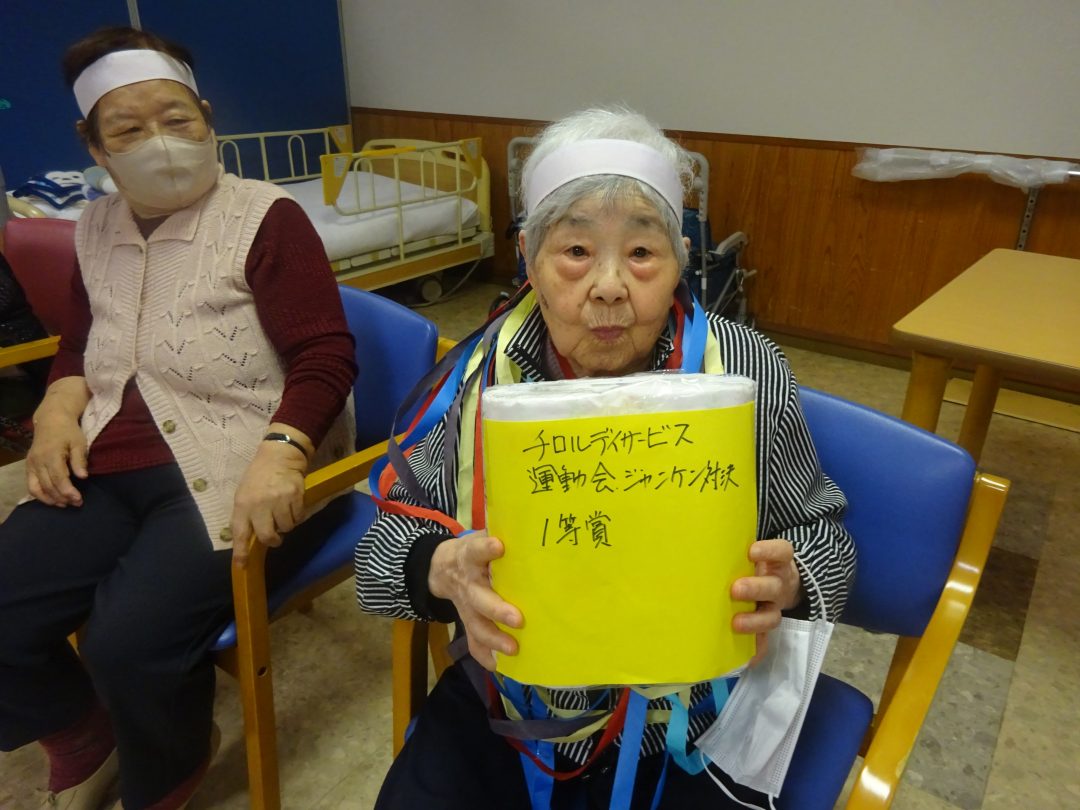 チロルデイサービス
運動会.ジャンケン対決
1等賞